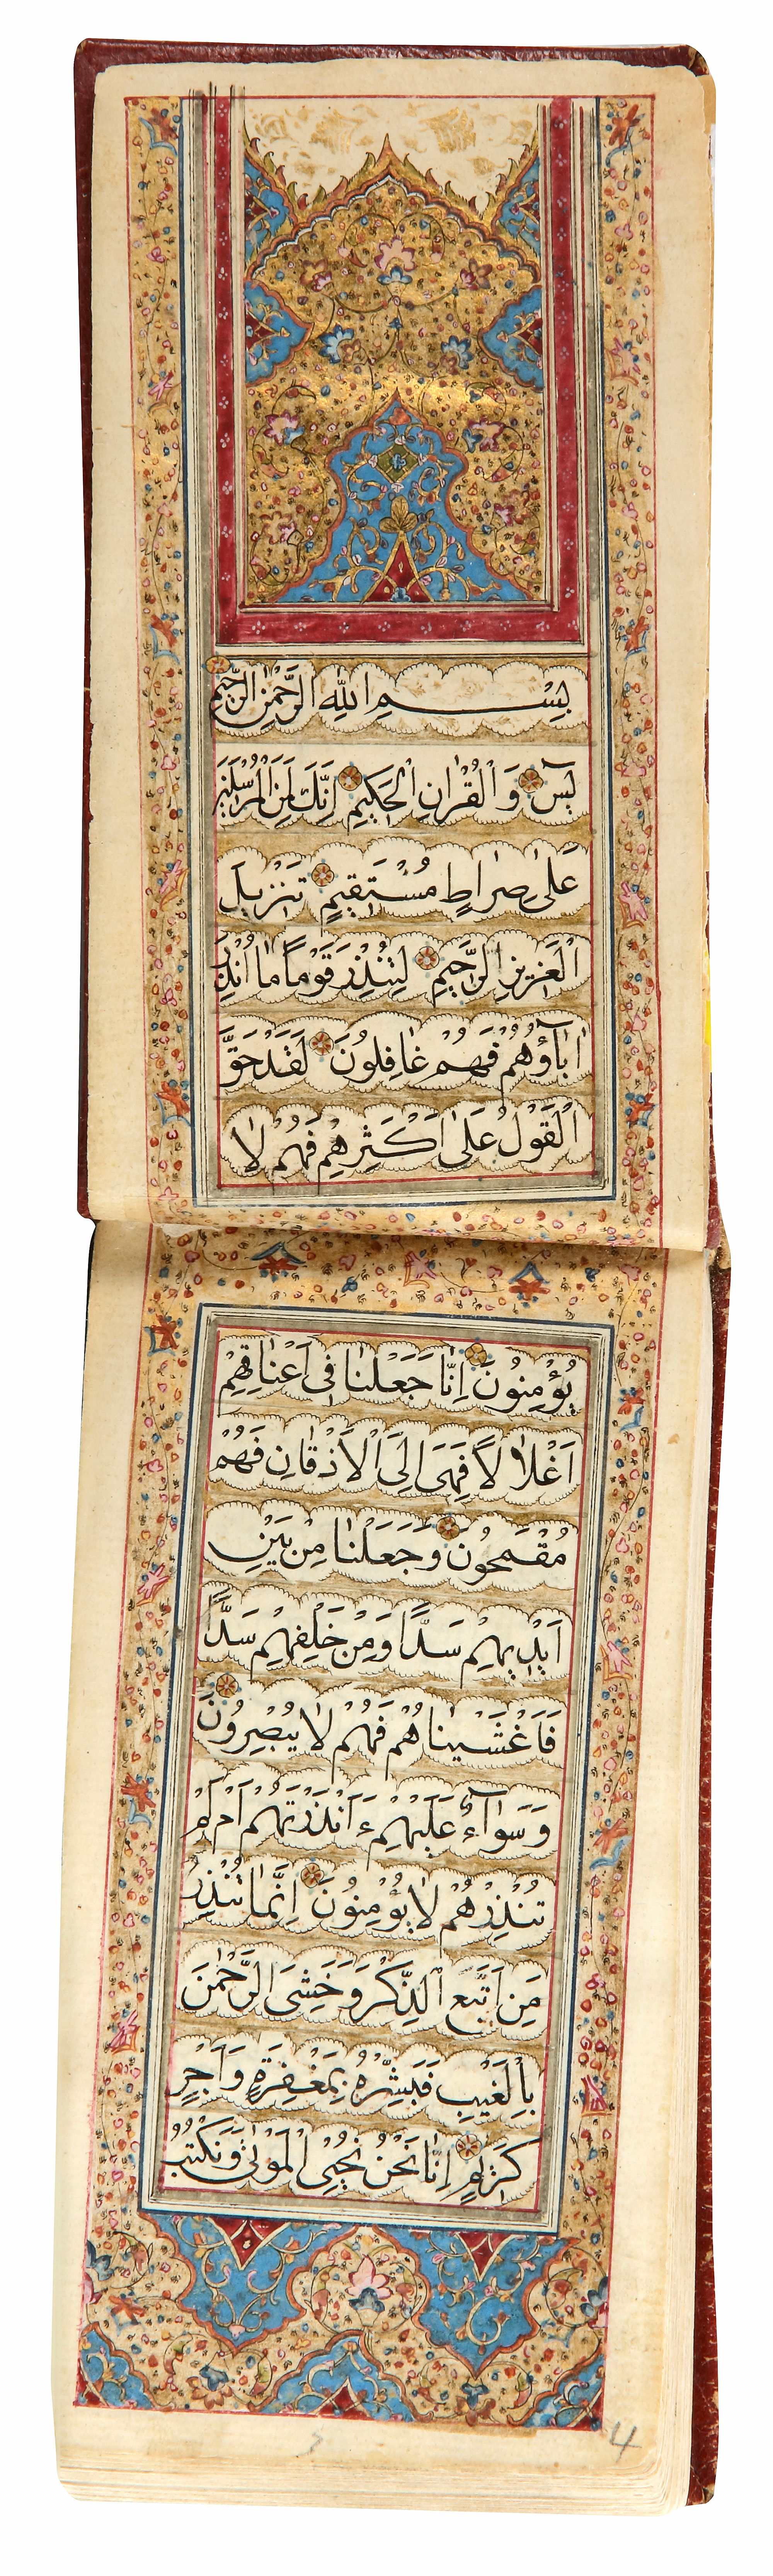 بِسْمِ اللهِ الرَّحْمٰنِ الرَّحيمِ
يٰسٓ وَ الْقُرْاٰنِ الْحَكيمِ اِنَّكَ لَمِنَ الْمُرْسَلينَ
عَلىٰ صِراطٍ مُسْتَقيمٍ تَنْزيلَ
الْعَزيزِ الرَّحيمِ لِتُنْذِرَ قَوْماً ما اُنْذِرَ
اٰبآؤُهُمْ فَهُمْ غافِلُونَ لَقَدْ حَقَّ
الْقَوْلُ عَلىٰ اَكْثَرِهِمْ فَهُمْ لا
يُؤْمِنُونَ اِنّا جَعَلْنا فى اَعْناقِهِمْ
اَغْلالاً فَهِىَ اِلَى الْاَذْقانِ فَهُمْ
مُقْمَحُونَ وَ جَعَلْنا مِنْ بَيْنِ
اَيْديهِمْ سَدًّا وَ مِنْ خَلْفِهِمْ سَدًّا
فَاَغْشَيْناهُمْ فَهُمْ لا يُبْصِرُونَ
وَ سَوآءٌ عَلَيْهِمْ ءَاَنْذَرْتَهُمْ اَمْ لَمْ
تُنْذِرْهُمْ لا يُؤْمِنُونَ اِنَّما تُنْذِرُ
مَنِ اتَّبَعَ الذِّكْرَ وَ خَشِىَ الرَّحْمٰنَ
بِالْغَيْبِ فَبَشِّرْهُ بِمَغْفِرَةٍ وَ اَجْرٍ
كَريمٍ اِنّا نَحْنُ نُحْيِى الْمَوْتىٰ وَ نَكْتُبُ
4